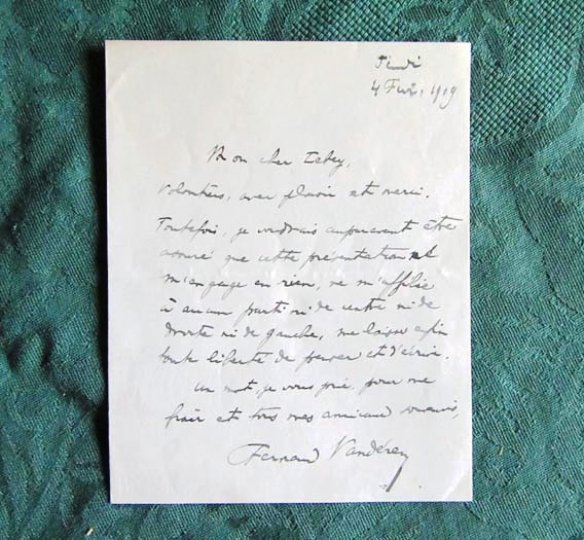 Jeudi
4 Fév. 1909
Mon cher
Volontiers, avec plaisir et merci.
Toutefois, je voudrais auparavant être
assuré que cette présentation ne
m'engage en rien, ne m'affilie
à aucun parti ni de centre ni de
droite ni de gauche, me laisse enfin
toute liberté de penser et d'écrire.
Un mot, je vous prie, pour me
et tous mes amicaux souvenirs,
Fernand Vandérem